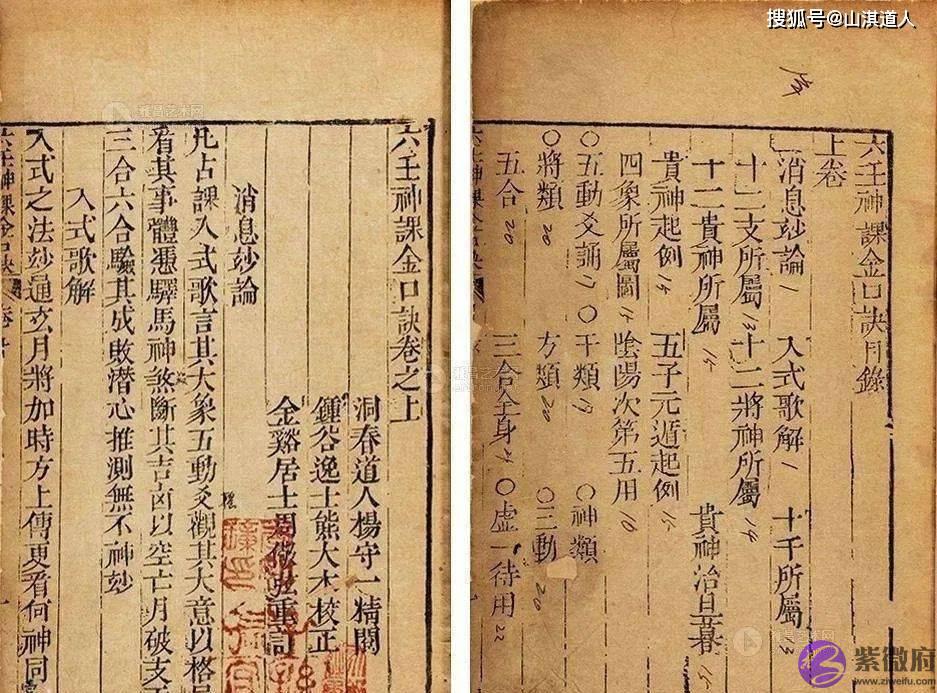 搜狐号@山淇道人
六壬神課金口訣目錄
上卷
消息玅論 1 入式歌解 1 十干所屬 13
十二支所屬 13 十二將神所屬 14
十二貴神所屬 15 貴神治旦暮 15
貴神起例 14 五子元遁起例 15
四象所屬圖 陰陽次第五用 10
○五動爻誦 ○干類 19 ○神類
○將類 20 ○方類 20 ○三動 20
五合 20 三合全身 ○虛一待用 22
六壬神課金口訣卷之上
洞春道人楊守一精閱
鍾谷逸士熊大木校正
金谿居士周儆弦重訂
消息玅論
凡占課入式歌言其大象五動爻觀其大意以格局
看其事體憑驛馬神煞斷其吉凶以空亡月破支干
三合六合驗其成敗潛心推測無不神妙
入式歌解
入式之法玅通玄月將加時方上傳更看何神同
六壬神課金口訣
雅昌艺术网
紫微府
www.ziweifu.com